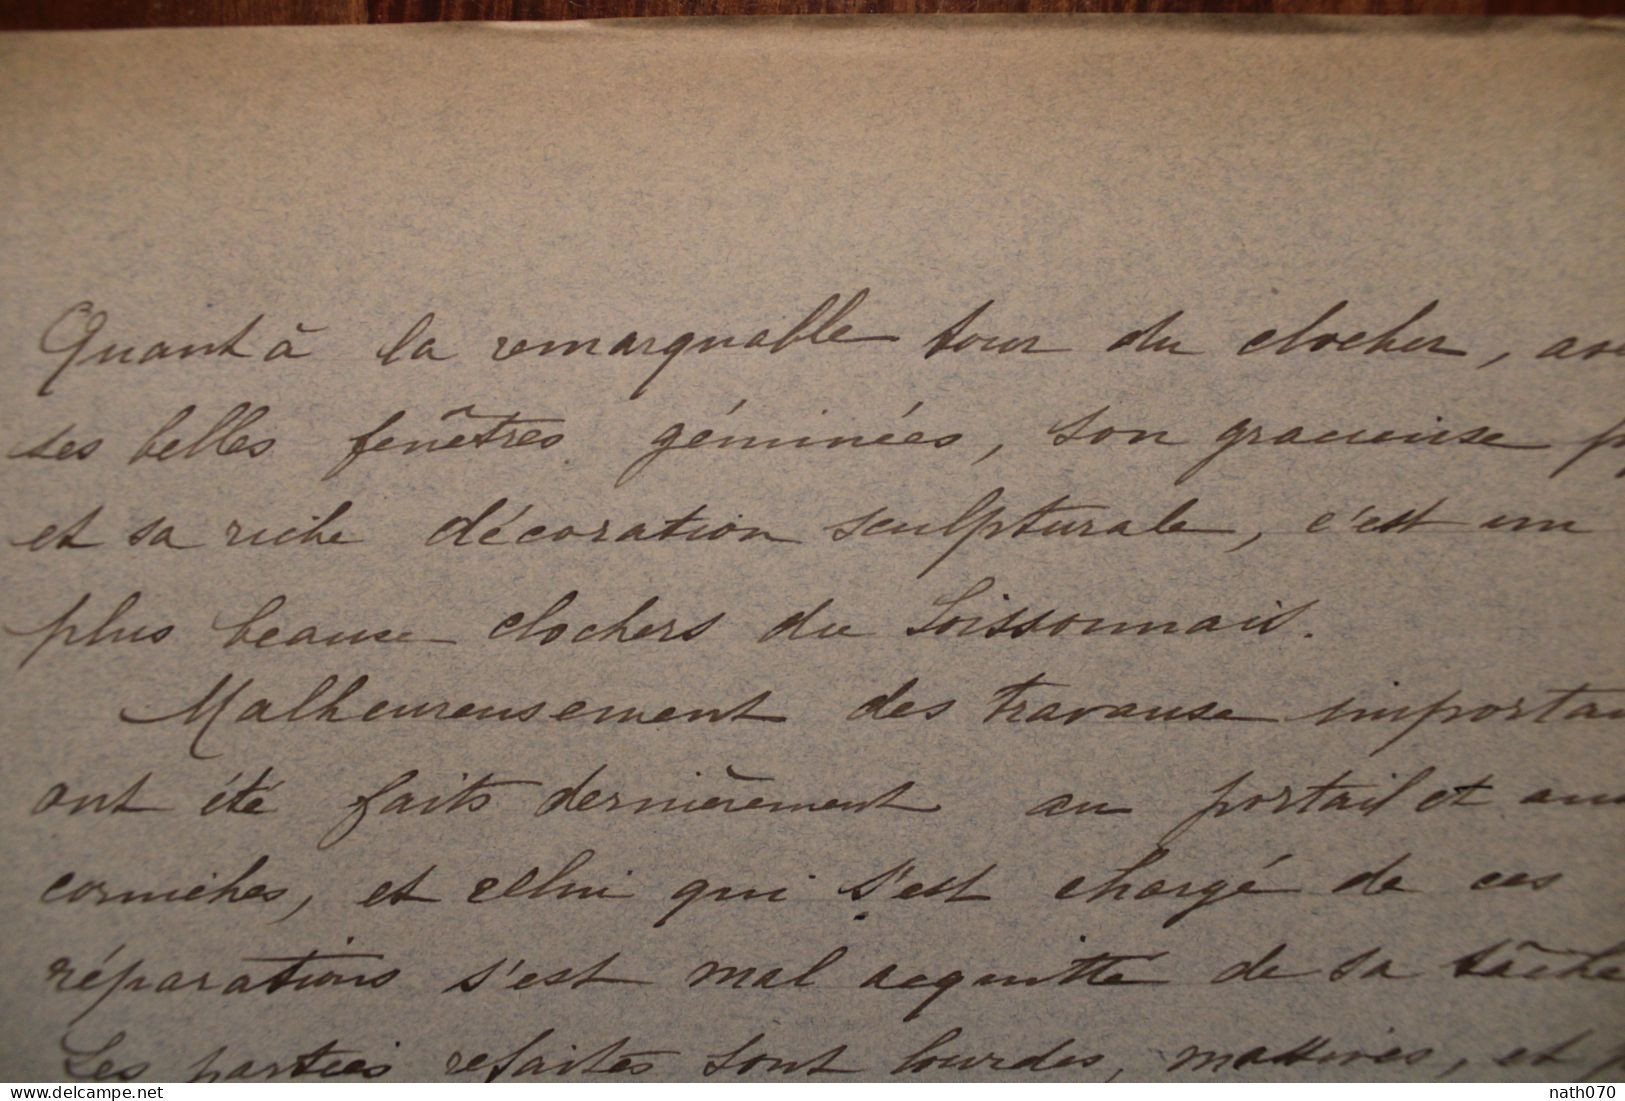 Quant à la remarquable tour du clocher, ave
ses belles fenêtres géminées, son gracieuse p
et sa riche décoration sculpturale, c'est un
plus beaux clochers du Soissonnais.
Malheureusement des travaux importan
ont été faits dernièrement au portail et aux
corniches, et celui qui s'est chargé de ces
réparations s'est mal acquitté de sa tâche
Les parties refaites sont lourdes, massives, et p
delcampe.net
nath070